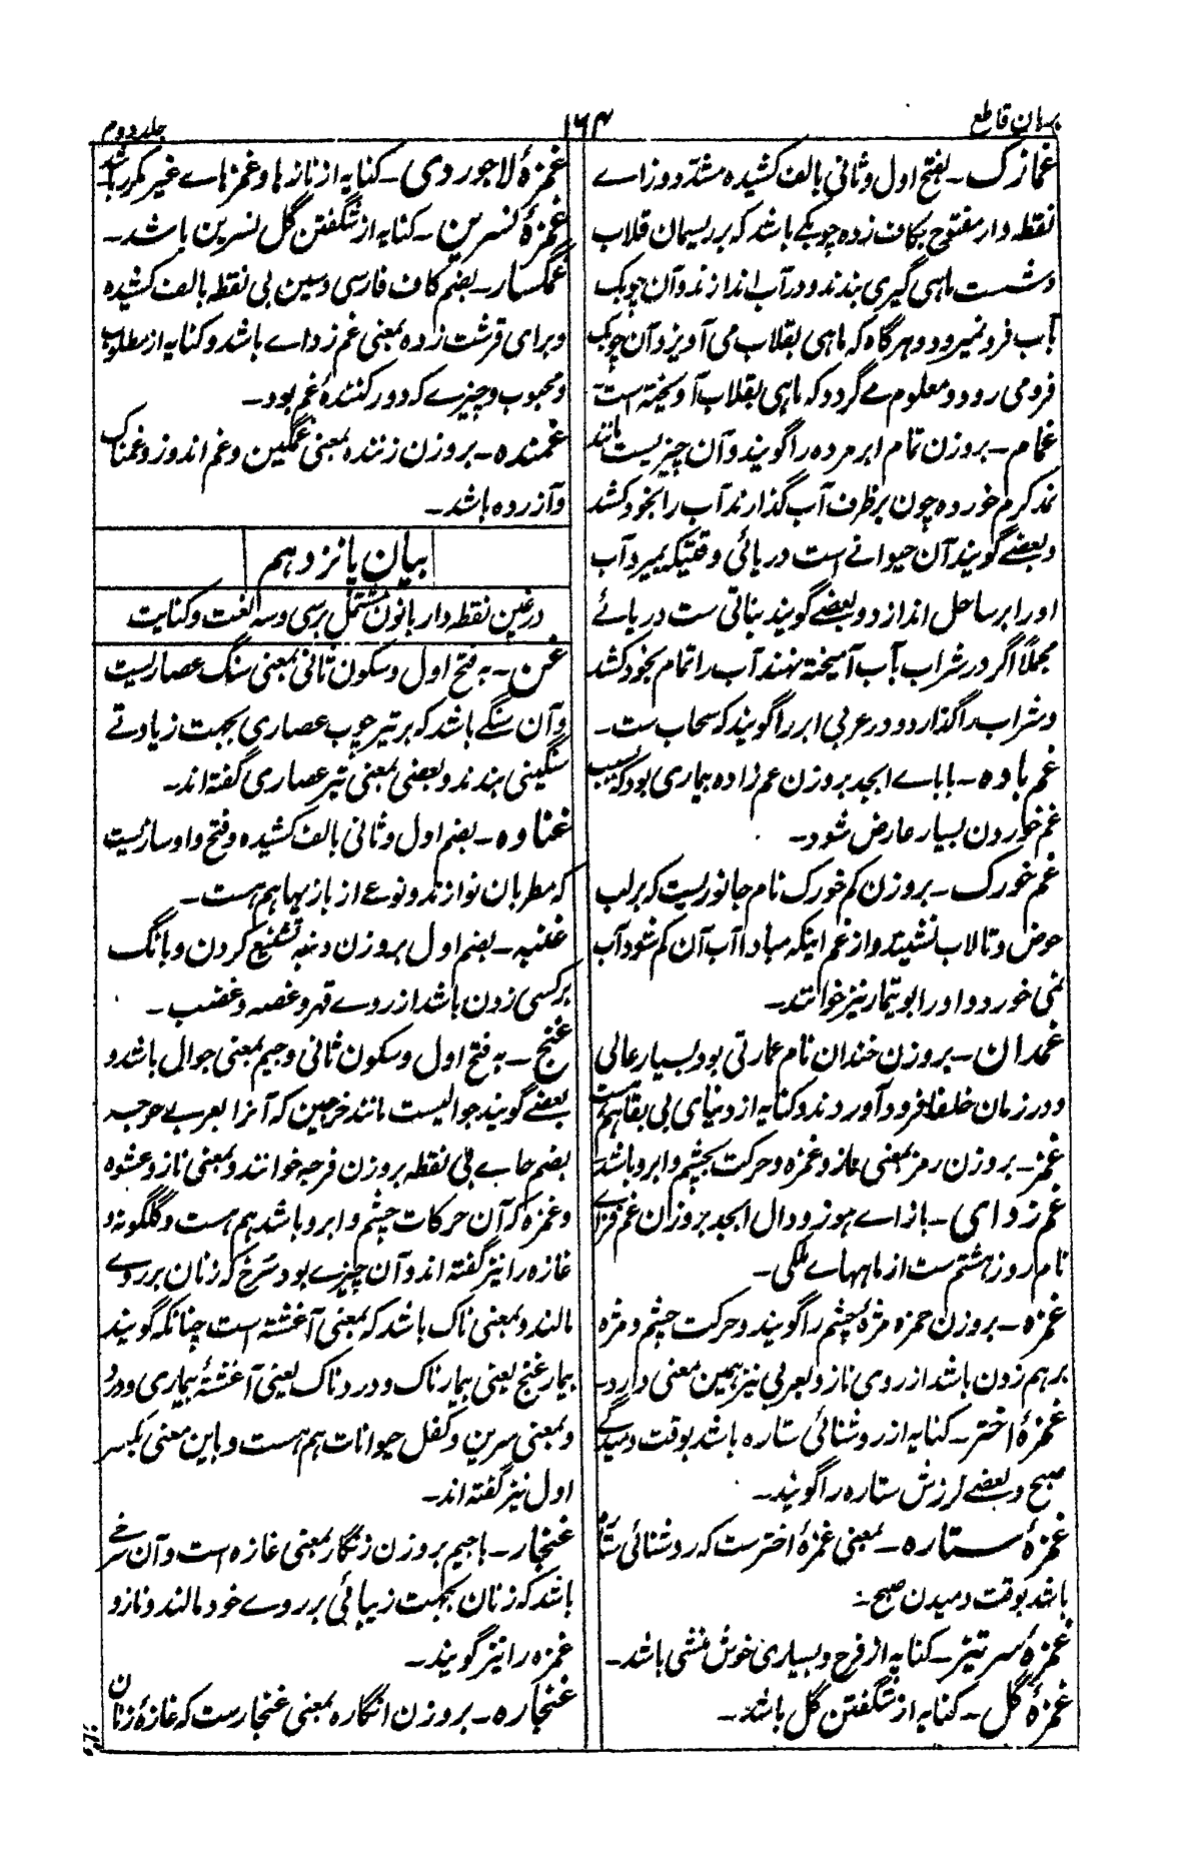 برهان قاطع
۱۶۴
جلد دوم
غمازک ـ بفتح اول و ثانی بالف کشیده مشدد و زاے
نقطه دار مفتوح بکاف زده چوبکے باشد که بر ریسمان قلاب
و شست ماهی گیری بندند و در آب اندازند و آن چوبک
بآب فرو نمیرود و هر گاه که ماهی بقلاب می آویزد آن چوبک
فرو می رود و معلوم مے گردد که ماهی بقلاب آویخته است
غمام ـ بروزن تمام ابر مرده را گویند و آن چیزیست مانند
نمد کرم خورده چون بر ظرف آب گذارند آب را بخود کشد
و بعضے گویند آن حیوانے است دریائی وقتیکه بمیرد آب
او را بر ساحل اندازد و بعضے گویند نباتی ست دریائے
مجملاً اگر در شراب بآب آمیخته نهند آب را تمام بخود کشد
و شراب را گذارد و در عربی ابر را گویند که سحاب ست ـ
غم باده ـ با باے ابجد بروزن عم زاده بیماری بود که بسبب
غم خوردن بسیار عارض شود ـ
غم خورک ـ بروزن کم خورک نام جانوریست که بر لب
حوض و تالاب نشیند و از غم اینکه مبادا آب آن کم شود آب
نمی خورد و او را بوتیمار نیز خوانند ـ
غمدان ـ بروزن خندان نام عمارتی بود بسیار عالی
و در زمان خلفا فرود آوردند و کنایه از دنیای بی بقا هم هست
غمز ـ بروزن رمز بمعنی ناز و غمزه و حرکت بچشم و ابرو باشد
غم زدای ـ با زاے هوز و دال ابجد بروزن غم فزاے
نام روز هشتم ست از ماههاے ملکی ـ
غمزه ـ بروزن حمزه مژهٔ چشم را گویند و حرکت چشم و مژه
بر هم زدن باشد از روی ناز و بعربی نیز همین معنی دارد ـ
غمزهٔ اختر ـ کنایه از روشنائی ستاره باشد بوقت دمیدگے
صبح و بعضے لرزش ستاره را گویند ـ
غمزهٔ ستاره ـ بمعنی غمزهٔ اختر ست که روشنائی ستاره
باشد بوقت دمیدن صبح ـ
غمزهٔ سر تیز ـ کنایه از فرح و بسیاری خوش منشی باشد ـ
غمزهٔ گل ـ کنایه از شگفتن گل باشد ـ
غمزهٔ لاجوردی ـ کنایه از نازها و غمزهاے غیر مکرر باشد
غمزهٔ نسرین ـ کنایه از شگفتن گل نسرین باشد ـ
غمگسار ـ بضم کاف فارسی و سین بی نقطه بالف کشیده
و برای قرشت زده بمعنی غم زداے باشد و کنایه از مطلوب
و محبوب و چیزے که دور کنندهٔ غم بود ـ
غمنده ـ بروزن زننده بمعنی غمگین و غم اندوز و غمناک
و آزرده باشد ـ
بیان پانزدهم
در غین نقطه دار با نون مشتمل بر سی و سه لغت و کنایت
غن ـ به فتح اول و سکون ثانی بمعنی سنگ عصاریست
و آن سنگے باشد که بر تیر چوب عصاری بجهت زیادتے
سنگینی بندند و بعضی بمعنی تیر عصاری گفته اند ـ
غناوه ـ بضم اول و ثانی بالف کشیده و فتح واو سازیست
که مطربان نوازند و نوعے از بازیها هم هست ـ
غنبه ـ بضم اول بروزن دنبه تشنیع کردن و بانگ
بر کسی زدن باشد از روے قهر و غصه و غضب ـ
غنج ـ به فتح اول و سکون ثانی و جیم بمعنی جوال باشد و
بعضے گویند جوالیست مانند خرجین که آنرا بعربے حرجه
بضم حاے بی نقطه بروزن فرجه خوانند و بمعنی ناز و عشوه
و غمزه که آن حرکات چشم و ابرو باشد هم هست و گلگونه و
غازه را نیز گفته اند و آن چیزے بود سرخ که زنان بر روے
مالند و بمعنی ناک باشد که بمعنی آغشته است چنانکه گویند
بیمار غنج یعنی بیمارناک و دردناک یعنی آغشتهٔ بیماری و درد
و بمعنی سرین و کفل حیوانات هم هست و باین معنی بکسر
اول نیز گفته اند ـ
غنجار ـ با جیم بروزن زنگار بمعنی غازه است و آن سرخے
باشد که زنان بجهت زیبائی بر روے خود مالند و ناز و
غمزه را نیز گویند ـ
غنجاره ـ بروزن انگاره بمعنی غنجار ست که غازهٔ زنان